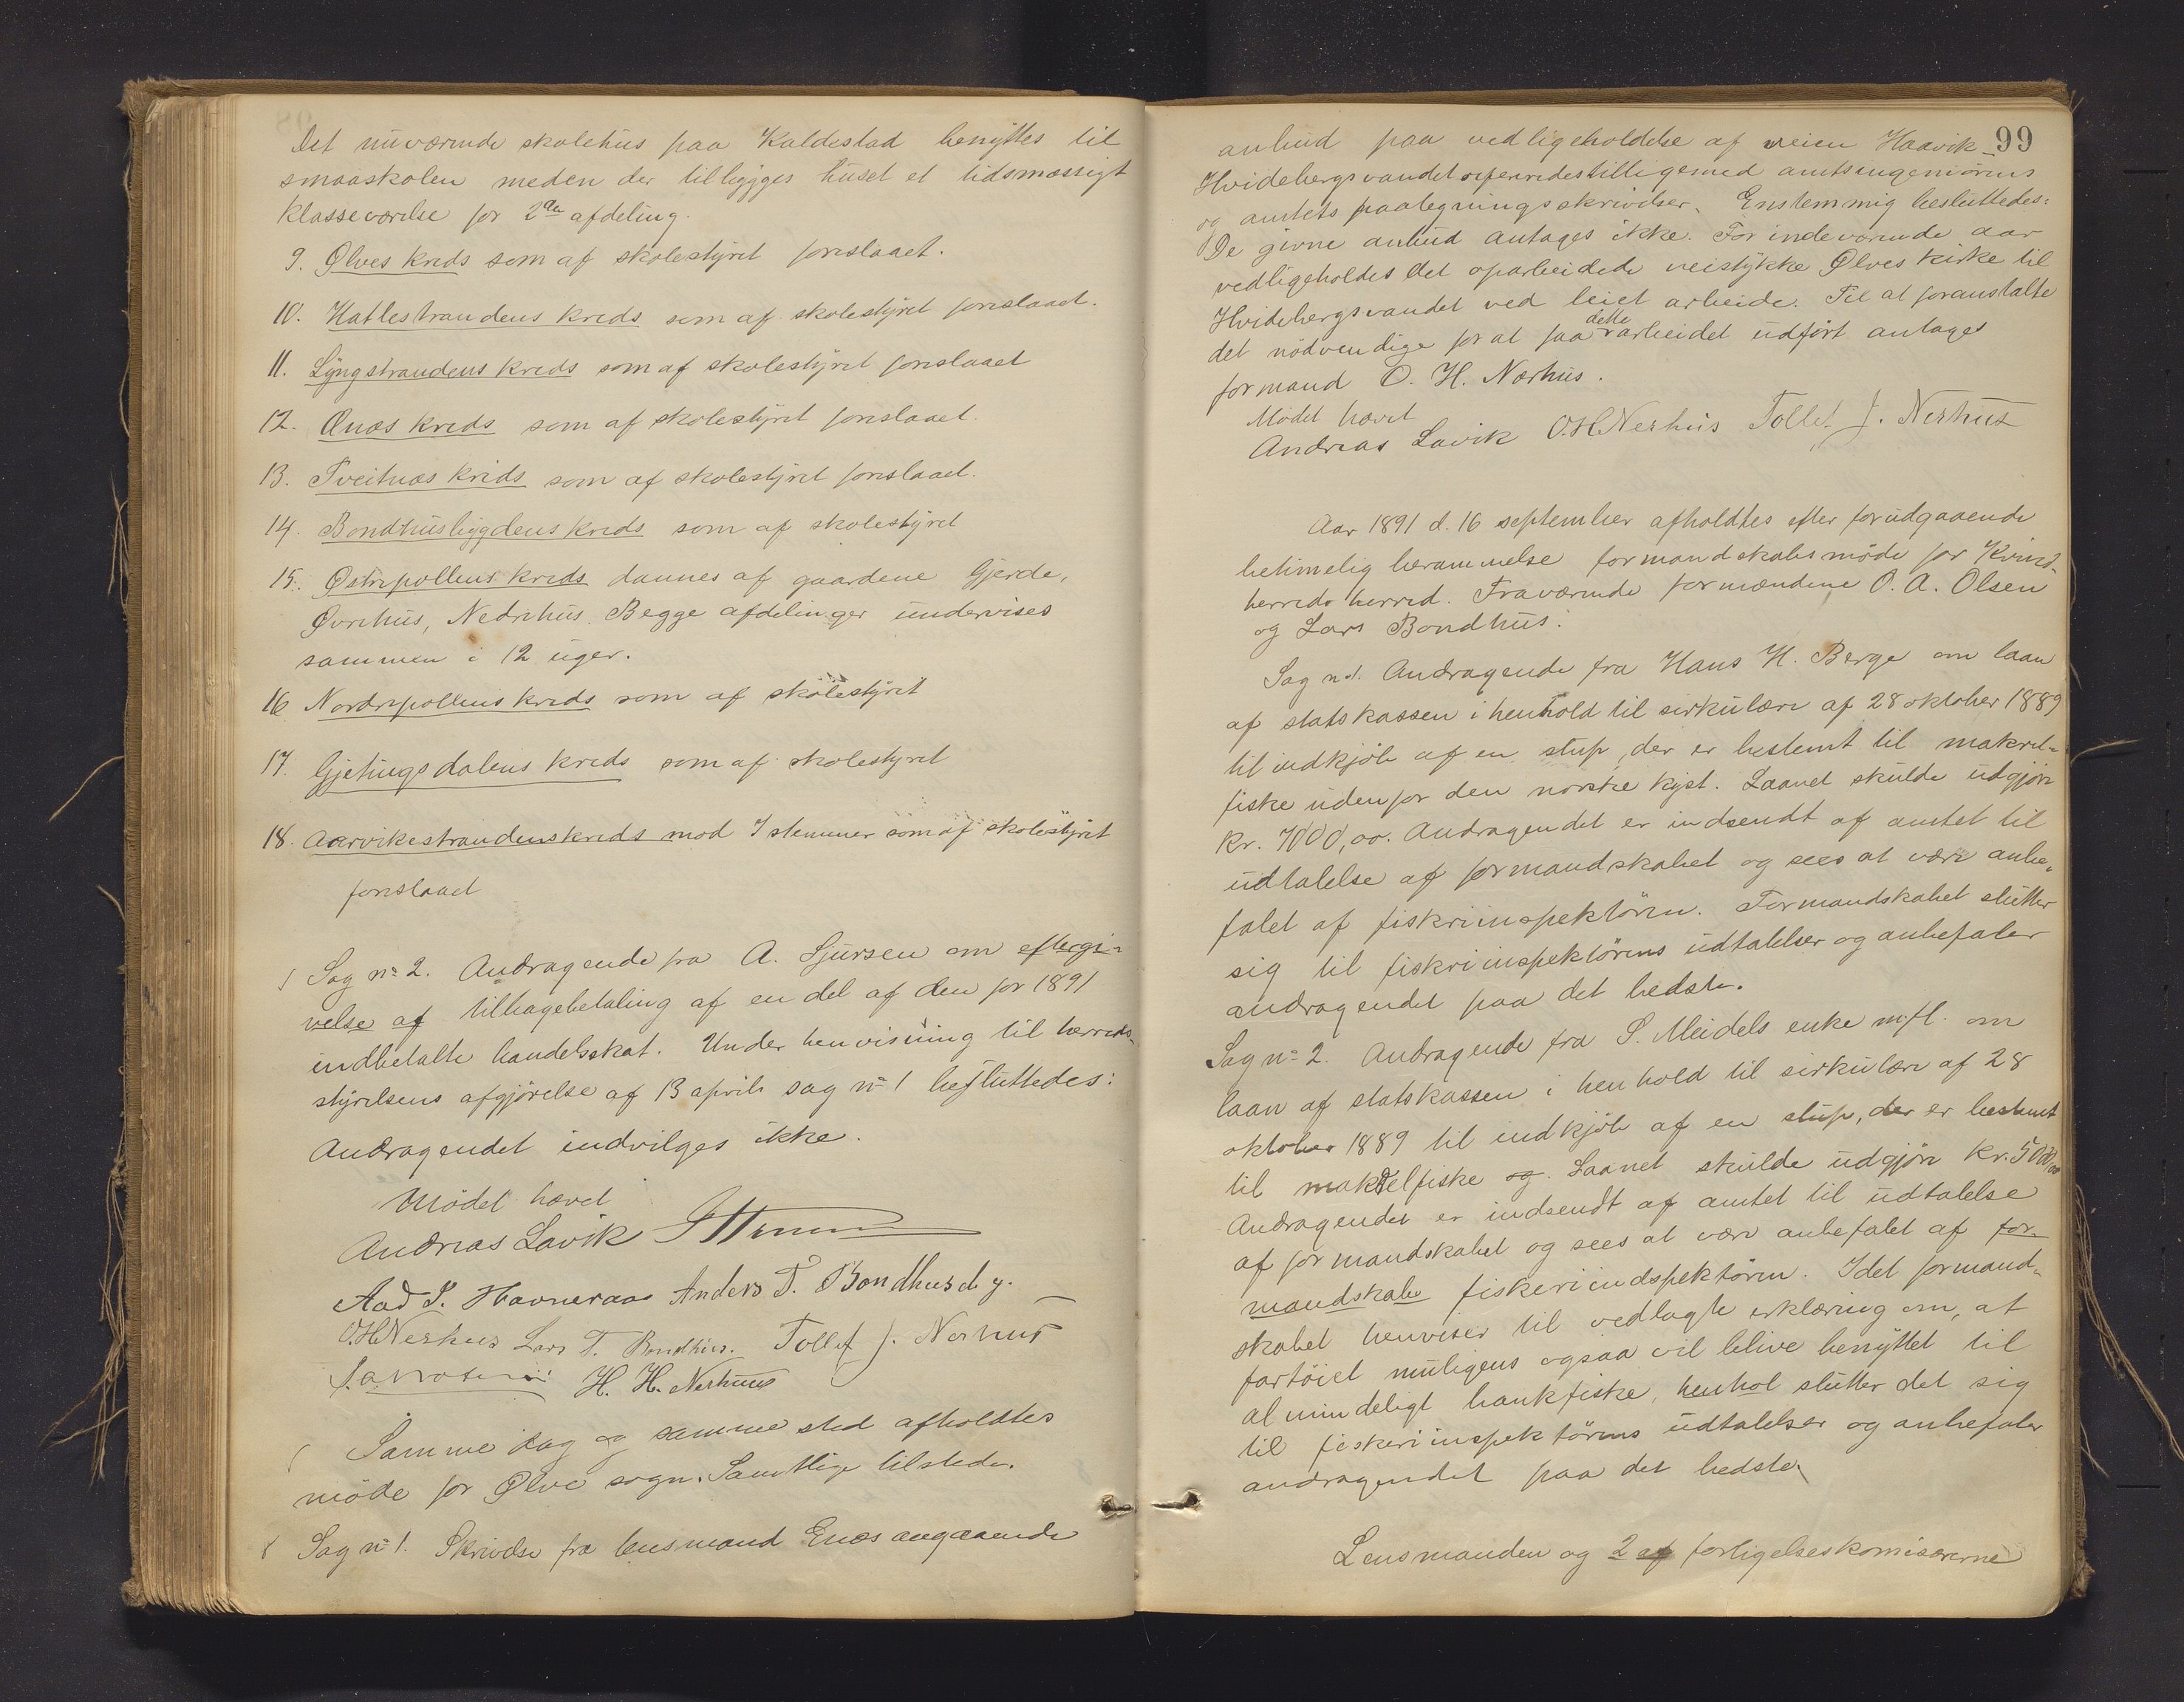 Det nuværende skolehus paa Kaldestad benyttes til
smaaskolen meden der tilbygges huset et tidsmæssigt
Klasseværelse for 2den afdeling.
9. Ølves kreds som af skolestyret foreslaaet.
10. Hatlestrandens kreds som af skolestyret foreslaaet.
11. Lyngstrandens kreds som af skolestyret foreslaaet
12. Ænæs kreds som af skolestyret foreslaaet.
13. Tveitnæs kreds som af skolestyret foreslaaet.
14. Bondhusbygdens kreds som af skolestyret
15. Østrepollens kreds dannes af gaardene Gjerde,
Øvrehus, Nedrehus. Begge afdelinger undervises
sammen i 12 uger.
16 Nordrepollens kreds som af skolestyret
17. Gjetingsdalens kreds som af skolestyret
18. Aarvikestrandens kreds mod 7 stemmer som af skolestyret
foreslaaet
Sag no 2. Andragende fra A. Sjursen om eftergi-
velse af tilbagebetaling af en del af den for 1891
indbetalte handelsskat. Under henvisning til herreds-
styrelsens afgjörelse af 13 april sag no 1 besluttedes:
Andragendet indvilges ikke.
Mödet hævet
Andreas Lavik
Aad S. Havneraas Anders T. Bondhus d. y.
O.H Nerhus Lars T. Bondhus. Tollef J. Nerhus
H. H. Nerhuus
Samme dag og samme sted afholdtes
möde for Ølve sogn. Samtlige tilstede.
Sag no 1. Skrivelse fra lensmand Enæs angaaende
99
anbud paa vedligeholdelse af veien Haavik-
Hvidebergsvandet refereredes tilligemed amtsingeniörens
og amtets paategningsskrivelser. Enstemmig besluttedes:
De givne anbud antages ikke. For indeværende aar
vedligeholdes det oparbeidede veistykke Ølves kirke til
Hvidebergsvandet ved leiet arbeide. Til at foranstalte
det nödvendige for at faa dette arbeidet udfört antages
formand O. H. Nerhus.
Mödet hævet
Andreas Lavik O.H Nerhus Tollef J. Nerhus
Aar 1891 d. 16 september afholdtes efter forudgaaende
betimelig berammelse formandskabsmöde for Kvind-
herreds herred. Fraværende formændene O. A. Olsen
og Lars Bondhus.
Sag no 1. Andragende fra Hans H. Berge om laan
af statskassen i henhold til sirkulære af 28 oktober 1889
til indkjöb af en slup, der er bestemt til makrel-
fiske udenfor den norske kyst. Laanet skulde udgjöre
kr. 7000,00. Andragendet er indsendt af amtet til
udtalelse af formandskabet og sees at være anbe-
falet af fiskeriinspektören. Formandskabet slutter
sig til fiskeriinspektörens udtalelser og anbefaler
andragendet paa det bedste.
Sag no 2. Andragende fra S. Meidels enke m. fl. om
laan af statskassen i henhold til sirkulære af 28
oktober 1889 til indkjöb af en slup, der er bestemt
til makrelfiske og. Laanet skulde udgjöre kr. 5000,00
Andragendet er indsendt af amtet til udtalelse
af formandskabet og sees at være anbefalet af for-
mandskabe fiskeriindspektören. Idet formand-
skabet henviser til vedlagte erklæring om, at
fartöiet muligens ogsaa vil blive benyttet til
almindeligt bankfiske, henhol slutter det sig
til fiskeriinspektörens udtalelser og anbefaler
andragendet paa det bedste.
Lensmanden og 2 af forligelseskomisærerne